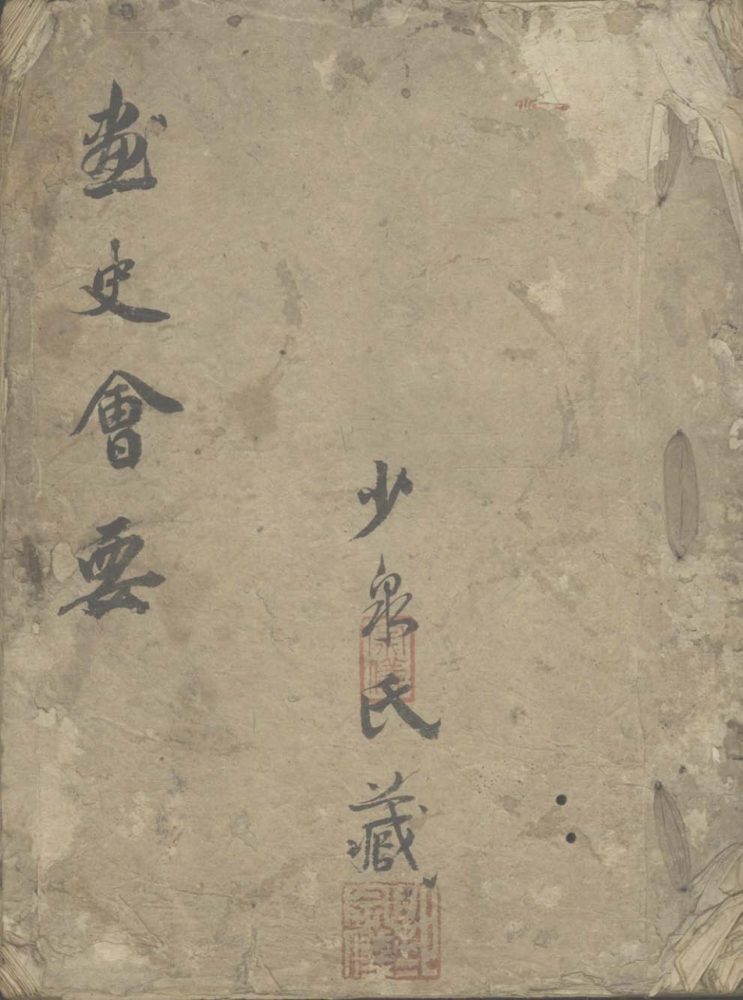 少泉氏藏
畫史會要